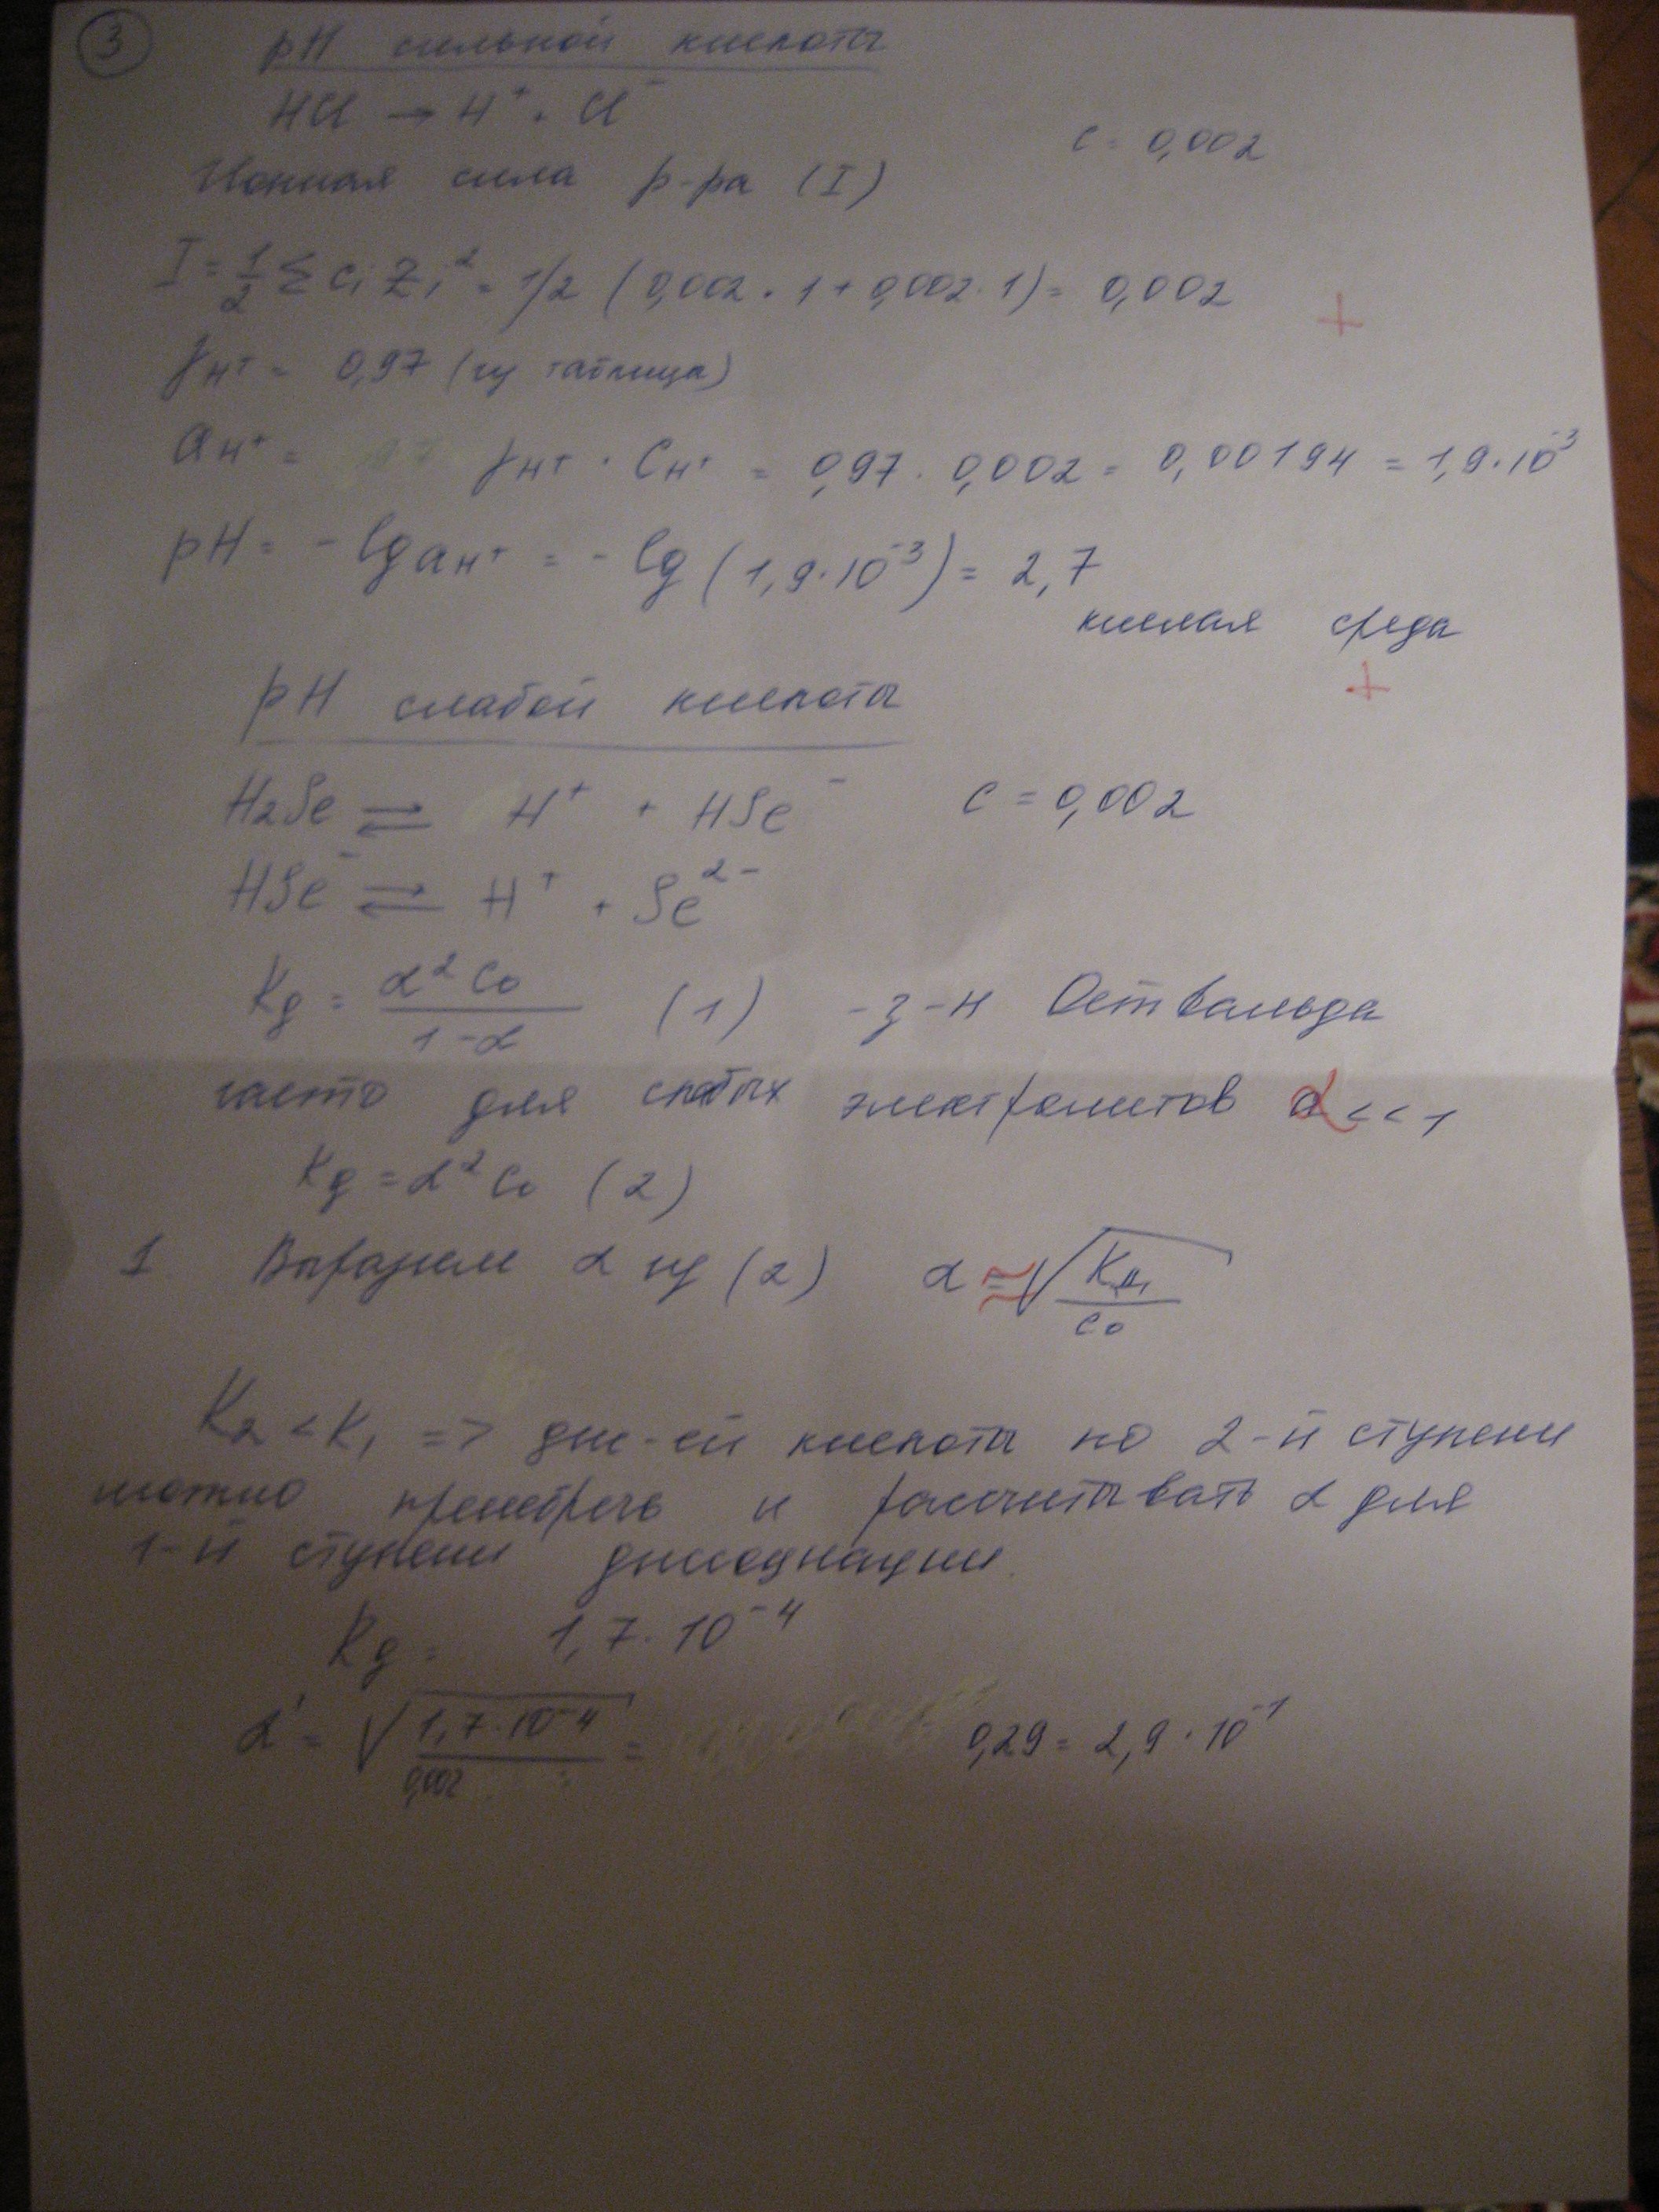 3
pH сильной кислоты
HCl → H⁺ + Cl⁻
C = 0,002
Ионная сила р-ра (I)
I = 1/2 Σ cᵢ Zᵢ² = 1/2 (0,002 · 1 + 0,002 · 1) = 0,002
+
γH⁺ = 0,97 (из таблица)
aH⁺ = γH⁺ · CH⁺ = 0,97 · 0,002 = 0,00194 = 1,9·10⁻³
pH = -lg aH⁺ = -lg (1,9·10⁻³) = 2,7
кислая среда
+
pH слабой кислоты
H₂Se ⇌ H⁺ + HSe⁻ C = 0,002
HSe⁻ ⇌ H⁺ + Se²⁻
Kg = α² C₀ / 1-α (1) - з-н Оствальда
часто для слабых электролитов α << 1
Kg = α² C₀ (2)
1 Выразим α из (2) α ≈ √ K / C₀
K₂ < K₁ => дис-ей кислоты по 2-й ступени
можно пренебречь и рассчитывать α для
1-й ступени диссоциации.
Kg = 1,7·10⁻⁴
α' = √ 1,7·10⁻⁴ / 0,002 = 0,29 = 2,9·10⁻¹